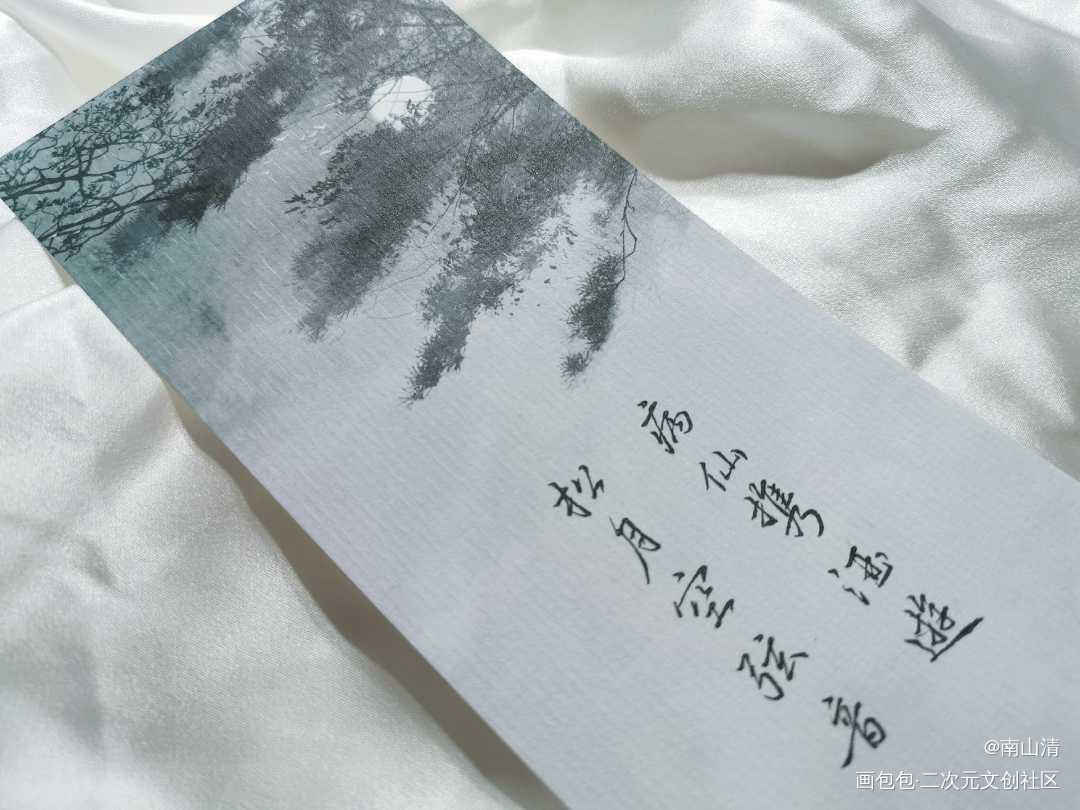 病仙携酒遊
松月空弦音
@南山清
画包包·二次元文创社区